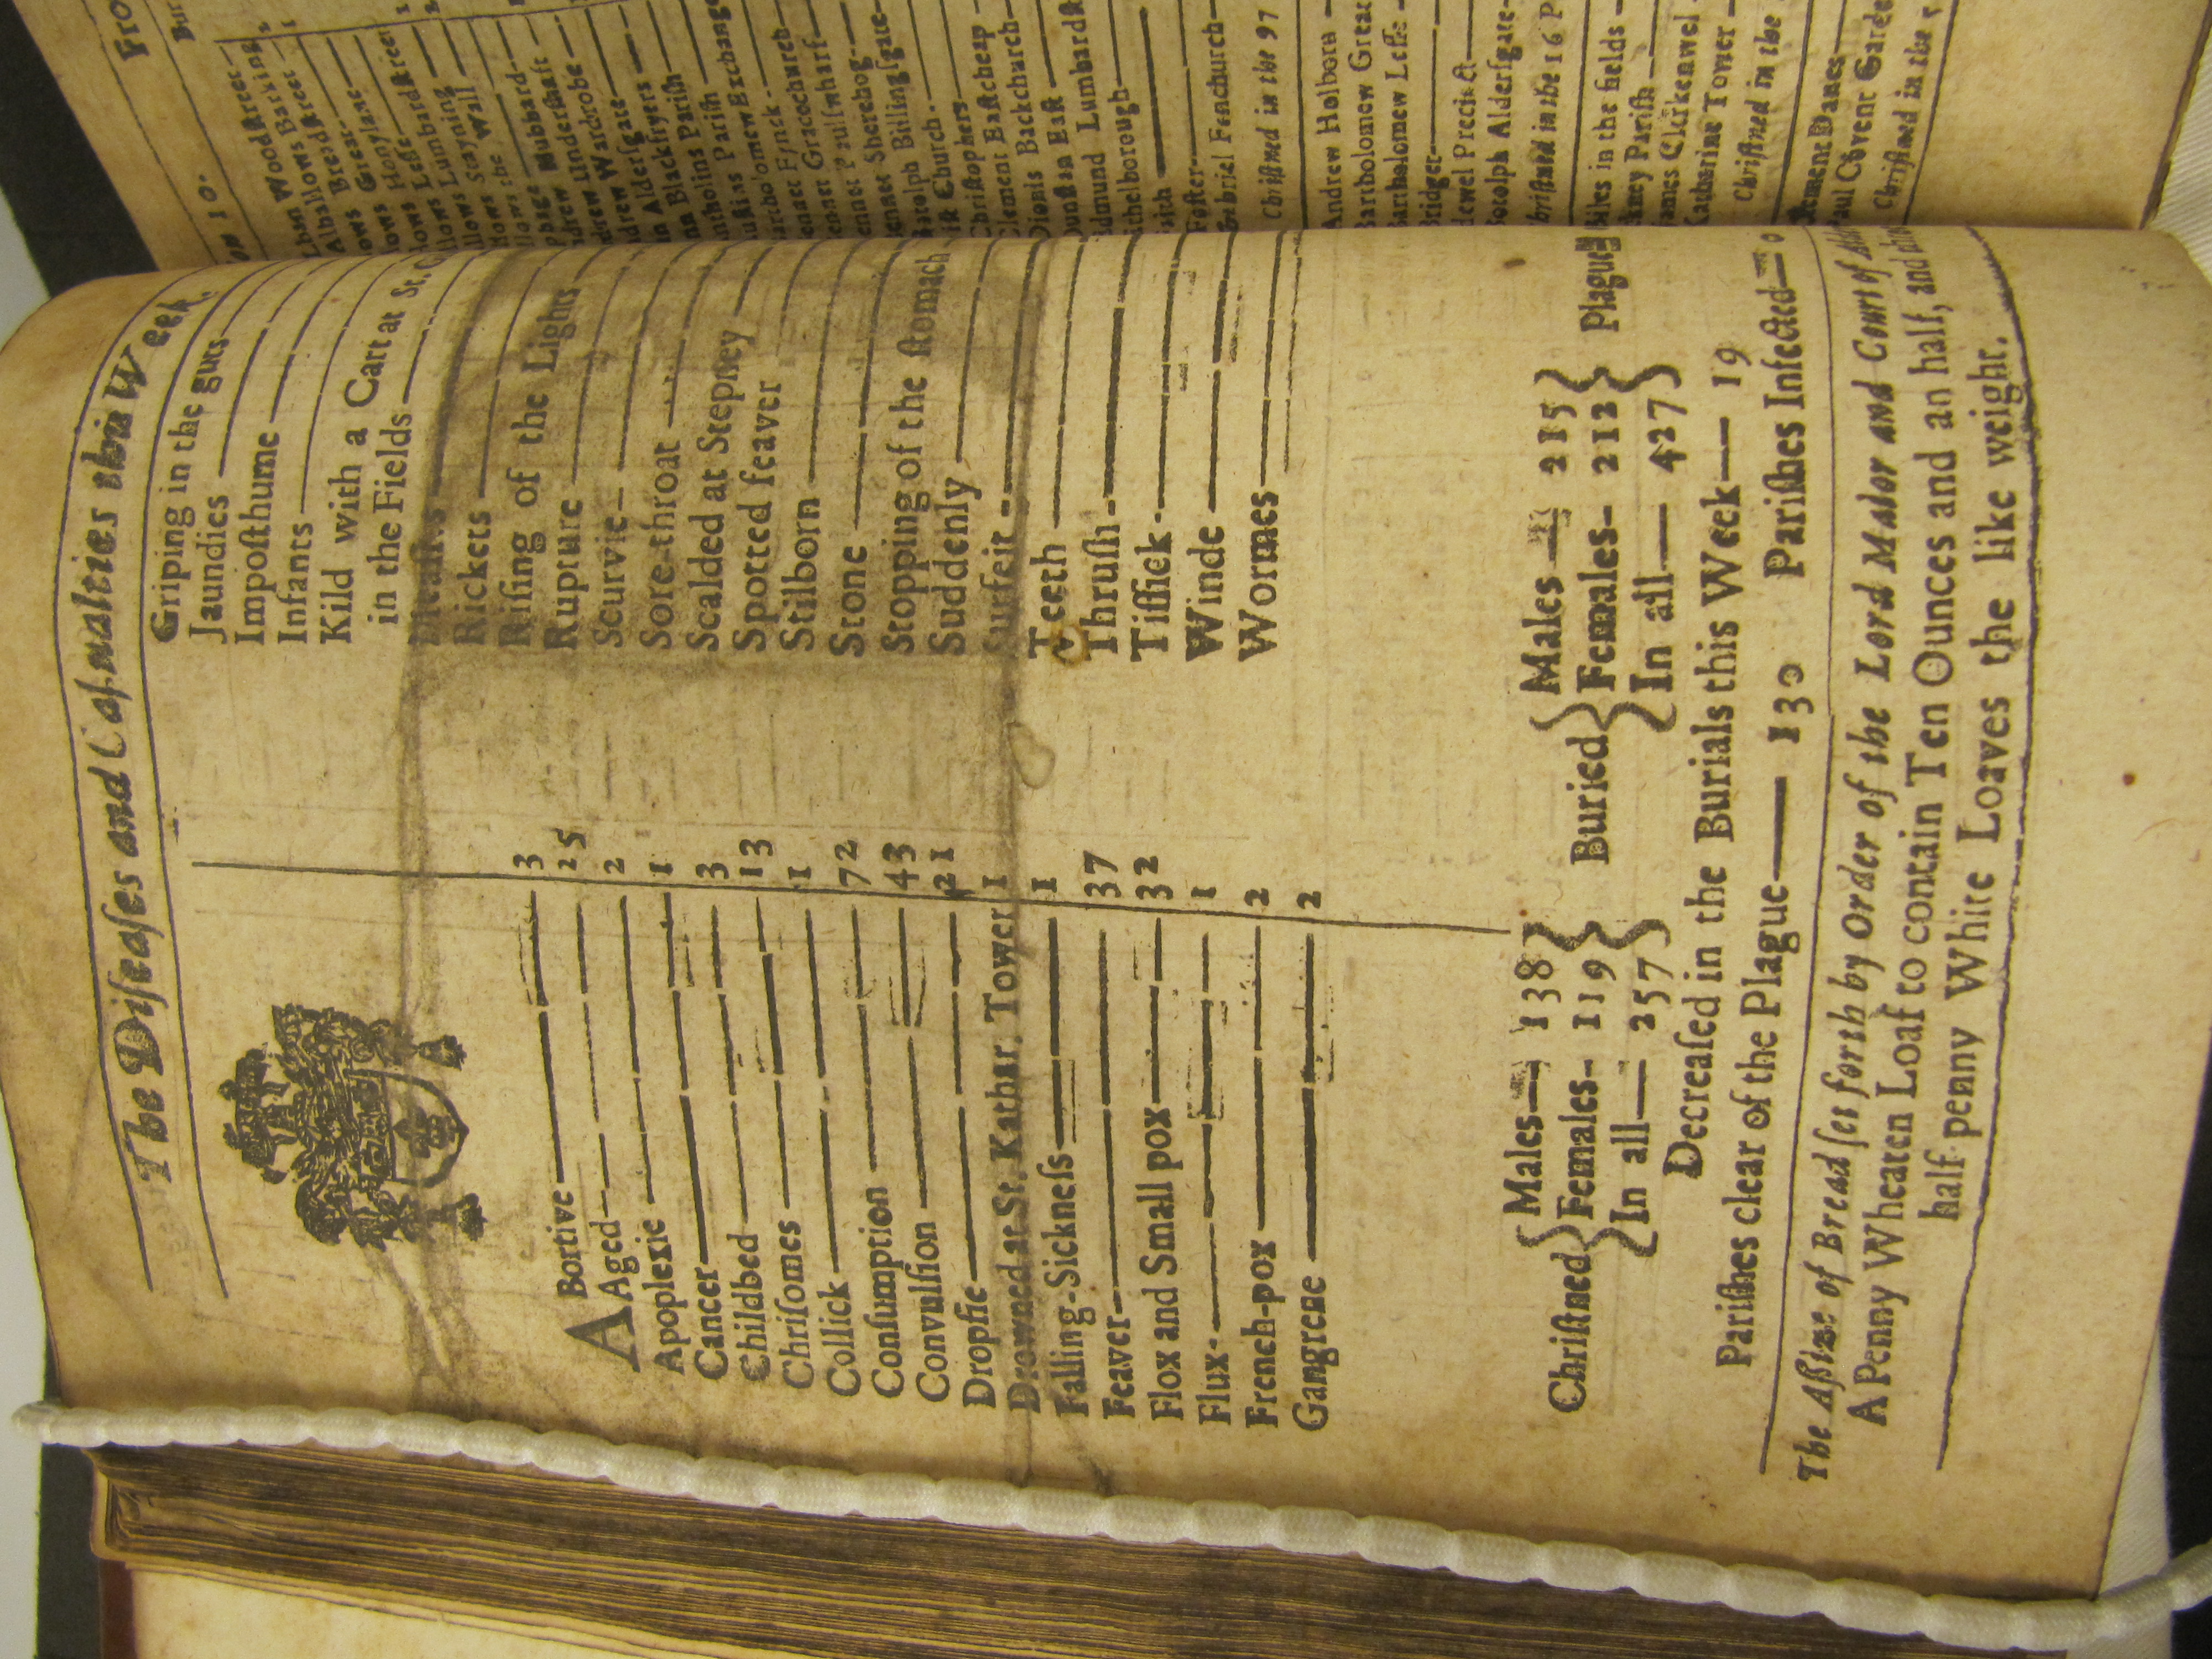 The Diſeaſes and Caſualties this Week.
ABortive 3
Aged 25
Apoplexie 2
Cancer 1
Childbed 3
Chriſomes 13
Collick 1
Conſumption 72
Convulſion 43
Dropſie 21
Drowned at St. Kathar. Tower 1
Falling-Sickneſs 1
Feaver 37
Flox and Small pox 32
Flux 1
French-pox 2
Gangrene 2
Griping in the guts
Jaundies
Impoſthume
Infants
Kild with a Cart at St.
in the Fields
Rickets
Riſing of the Lights
Rupture
Scurvie
Sore-throat
Scalded at Stepney
Spotted feaver
Stilborn
Stone
Stopping of the ſtomach
Suddenly
Surfeit
Teeth
Thruſh
Tiſſick
Winde
Wormes
Chriſtned { Males 138 Females 119 In all 257 }
Buried { Males 215 Females 212 In all 427 } Plague
Decreaſed in the Burials this Week 19
Pariſhes clear of the Plague 130 Pariſhes Infected 0
The Aſsize of Bread ſet forth by Order of the Lord Maior and Court of
A Penny Wheaten Loaf to contain Ten Ounces and an half, and
half-penny White Loaves the like weight.
Fro
Bur
Woodſtreet
Barking
Breadſtreet
Great
Honylane
Leſſe
Lumbardſtreet
Stayning
the Wall
Hubbard
Underſhaft
Wardrobe
Alderſgate
Blackfryers
Pariſh
Pariſh
Exchange
Fynck
Gracechurch
Paulſwharf
Sherehog
Botolph Billingſgate
Church
Chriſtophers
Clement Eaſtcheap
Dionis Backchurch
Dunſtan Eaſt
Edmund Lumbardſt
Ethelborough
Faith
Foſter
Gabriel Fenchurch
Chriſtned in the 97
Andrew Holborn
Bartholomew Great
Bartholomew Leſſe
Bridget
Bridewel Precinct
Botolph Alderſgate
Chriſtned in the 16 P
Giles in the fields
Hackney Pariſh
James Clerkenwel
Katharine Tower
Chriſtned in the
Clement Danes
Paul Covent Garde
Chriſtned in the